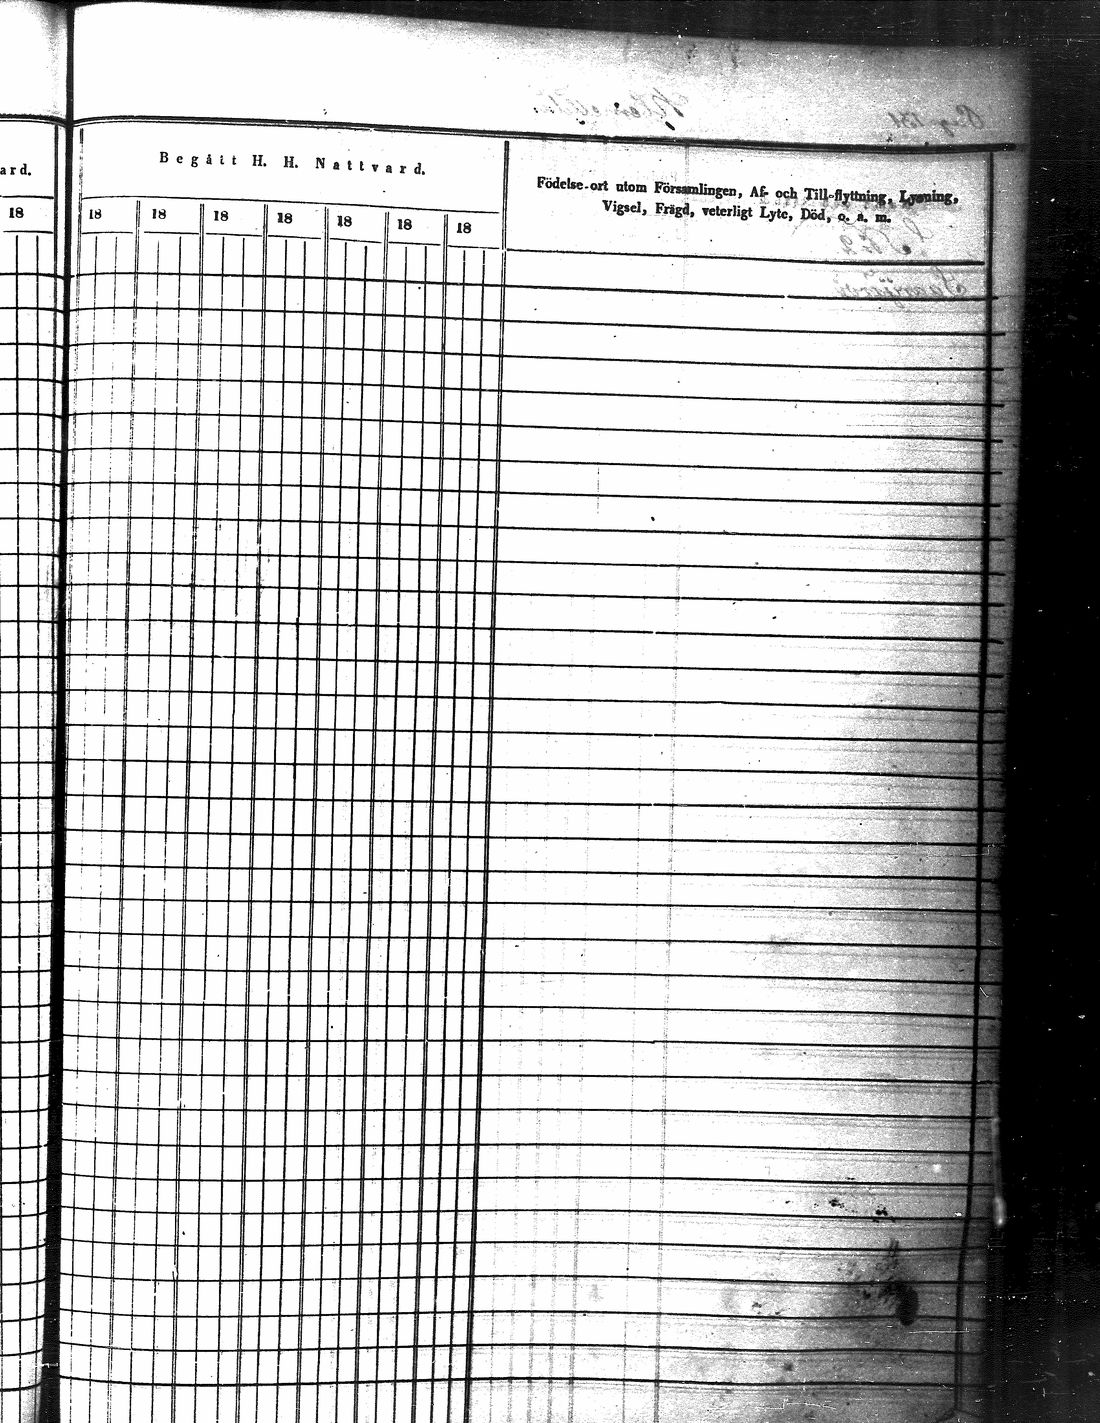 ard.
Begått H. H. Nattvard.
Födelse-ort utom Församlingen, Af- och Till-flyttning, Lysning,
Vigsel, Frägd, veterligt Lyte, Död, o. a. m.
18 18 18 18 18 18 18 18